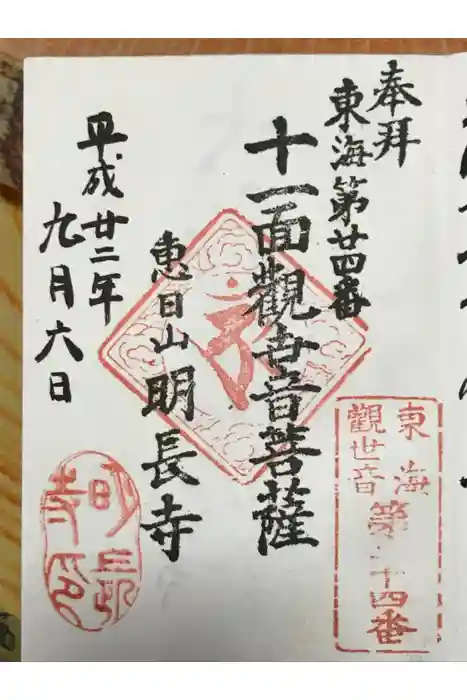 奉拝
東海第廿四番
十一面觀世音菩薩
惠日山
明長寺
平成廿二年
九月六日
東海
觀世音
第二十四番
明長
寺印